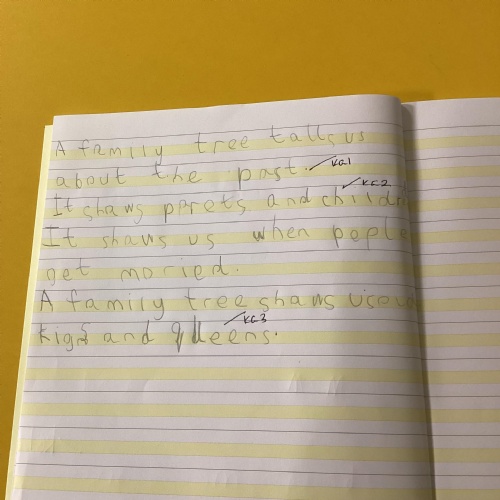 A family tree talls us
about the past. KG1
It shaws prrets and childr KG2
It shaws us when peple
get moried.
A family tree shaws us
kigs and queens. KG3